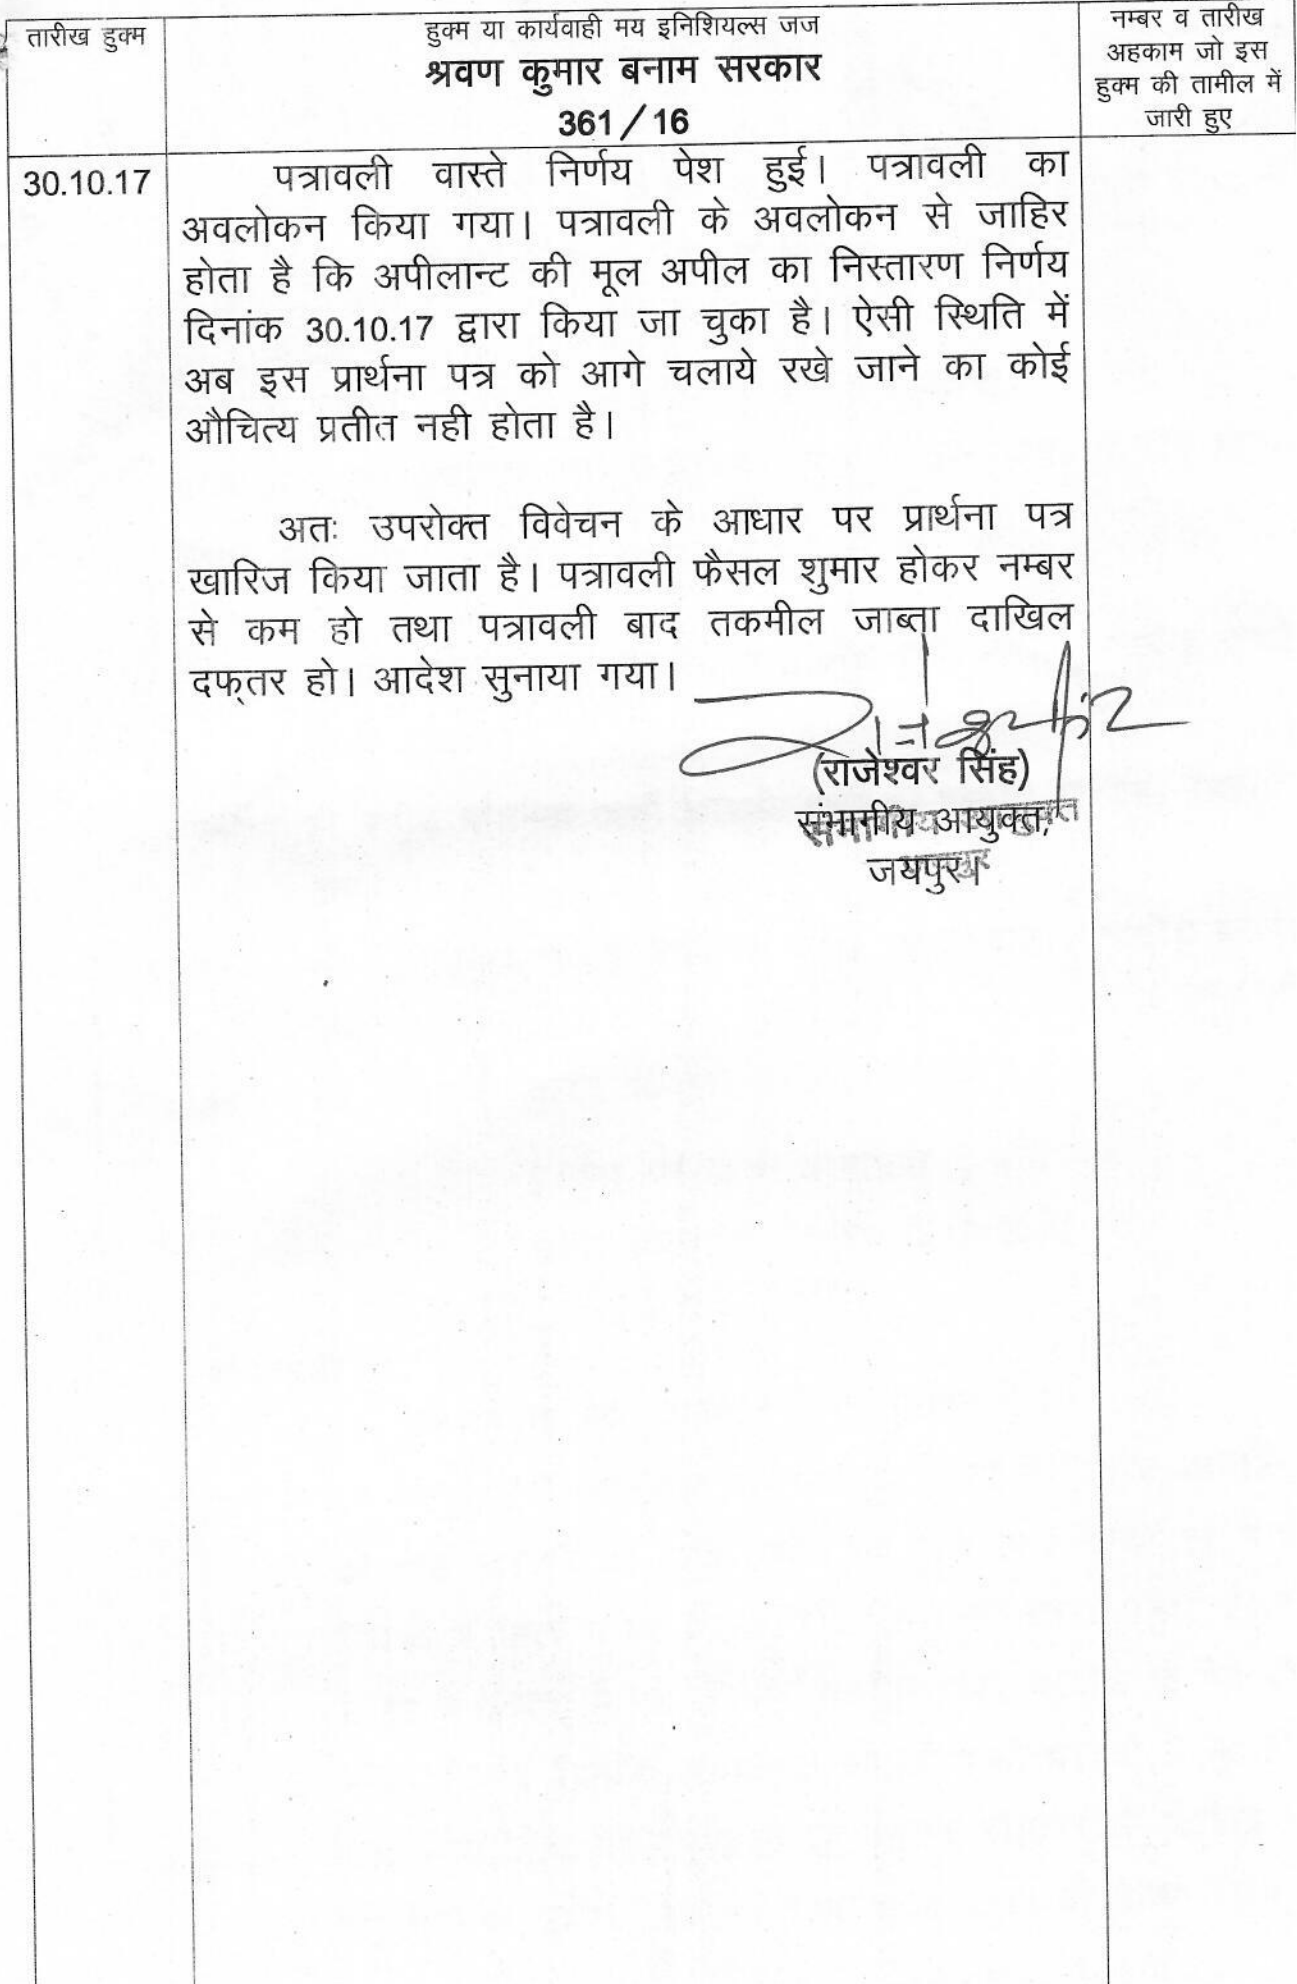 तारीख हुक्म
हुक्म या कार्यवाही मय इनिशियल्स जज
श्रवण कुमार बनाम सरकार
361/16
नम्बर व तारीख
अहकाम जो इस
हुक्म की तामील में
जारी हुए
30.10.17
पत्रावली वास्ते निर्णय पेश हुई। पत्रावली का
अवलोकन किया गया। पत्रावली के अवलोकन से जाहिर
होता है कि अपीलान्ट की मूल अपील का निस्तारण निर्णय
दिनांक 30.10.17 द्वारा किया जा चुका है। ऐसी स्थिति में
अब इस प्रार्थना पत्र को आगे चलाये रखे जाने का कोई
औचित्य प्रतीत नही होता है।
अतः उपरोक्त विवेचन के आधार पर प्रार्थना पत्र
खारिज किया जाता है। पत्रावली फैसल शुमार होकर नम्बर
से कम हो तथा पत्रावली बाद तकमील जाब्ता दाखिल
दफ्तर हो। आदेश सुनाया गया।
(राजेश्वर सिंह)
संभागीय आयुक्त,
जयपुर।